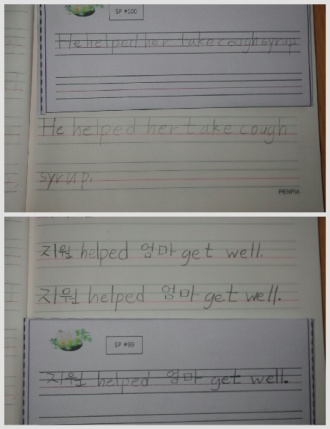 SP #100
He helped her take cough syrup
He helped her take cough
syrup.
PENPIA
지원 helped 엄마 get well.
지원 helped 엄마 get well.
SP #99
지원 helped 엄마 get well.